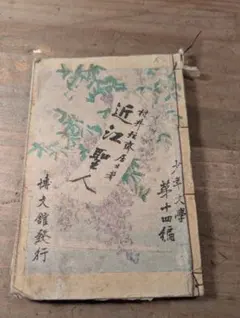 少年文學
第十四編
村井弦齋居士著
近江聖人
博文館發行